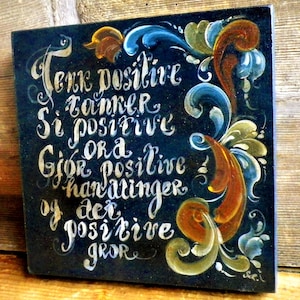 Tenk positive
tanker
Si positive
ord
Gjør positive
handlinger
og det
positive
gror